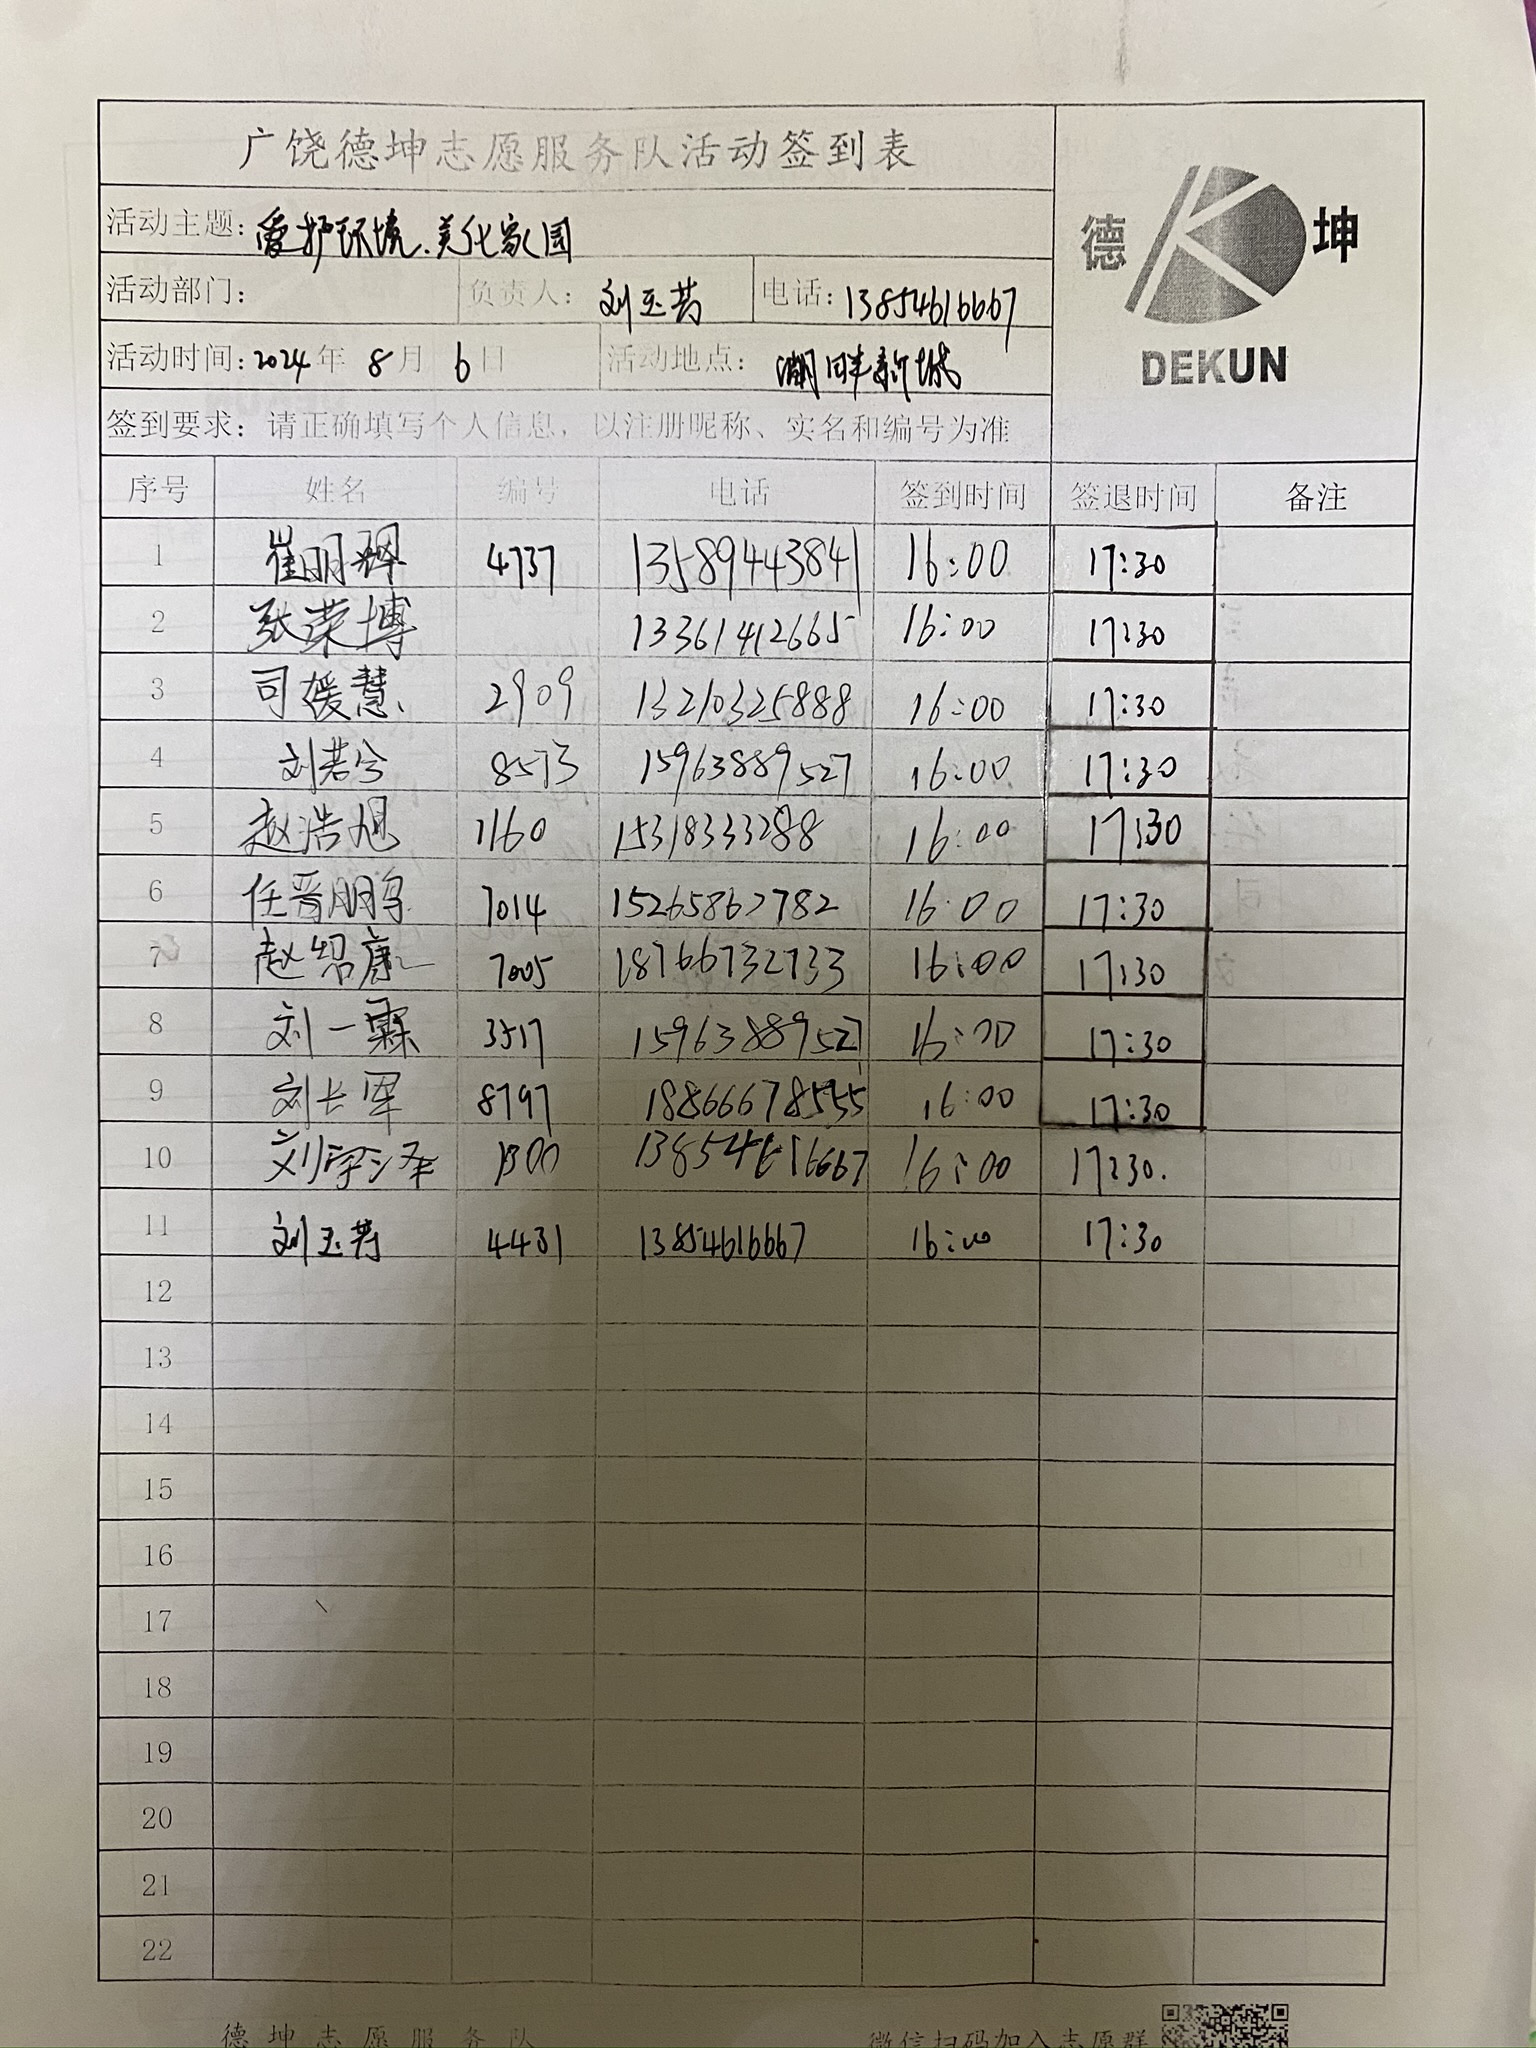 广饶德坤志愿服务队活动签到表
德 坤
DEKUN
活动主题：爱护环境.美化家园
活动部门： 负责人：刘玉芳 电话：13854616667
活动时间：2024年 8月 6日 活动地点：湖畔新城
签到要求：请正确填写个人信息，以注册昵称、实名和编号为准
序号 姓名 编号 电话 签到时间 签退时间 备注
1 崔明辉 4737 13589443841 16:00 17:30
2 张荣博 13361412665 16:00 17:30
3 司媛慧 2909 13210325888 16:00 17:30
4 刘若兮 8573 15963889527 16:00 17:30
5 赵浩旭 1160 15318333288 16:00 17:30
6 任晋朋 7014 15265862782 16:00 17:30
7 赵绍康 7005 18766732733 16:00 17:30
8 刘一霖 3517 15963889527 16:00 17:30
9 刘长军 8797 18866678555 16:00 17:30
10 刘宇泽 1300 13854616667 16:00 17:30.
11 刘玉芳 4431 13854616667 16:00 17:30
12
13
14
15
16
17
18
19
20
21
22
德坤志愿服务队 微信扫码加入志愿群